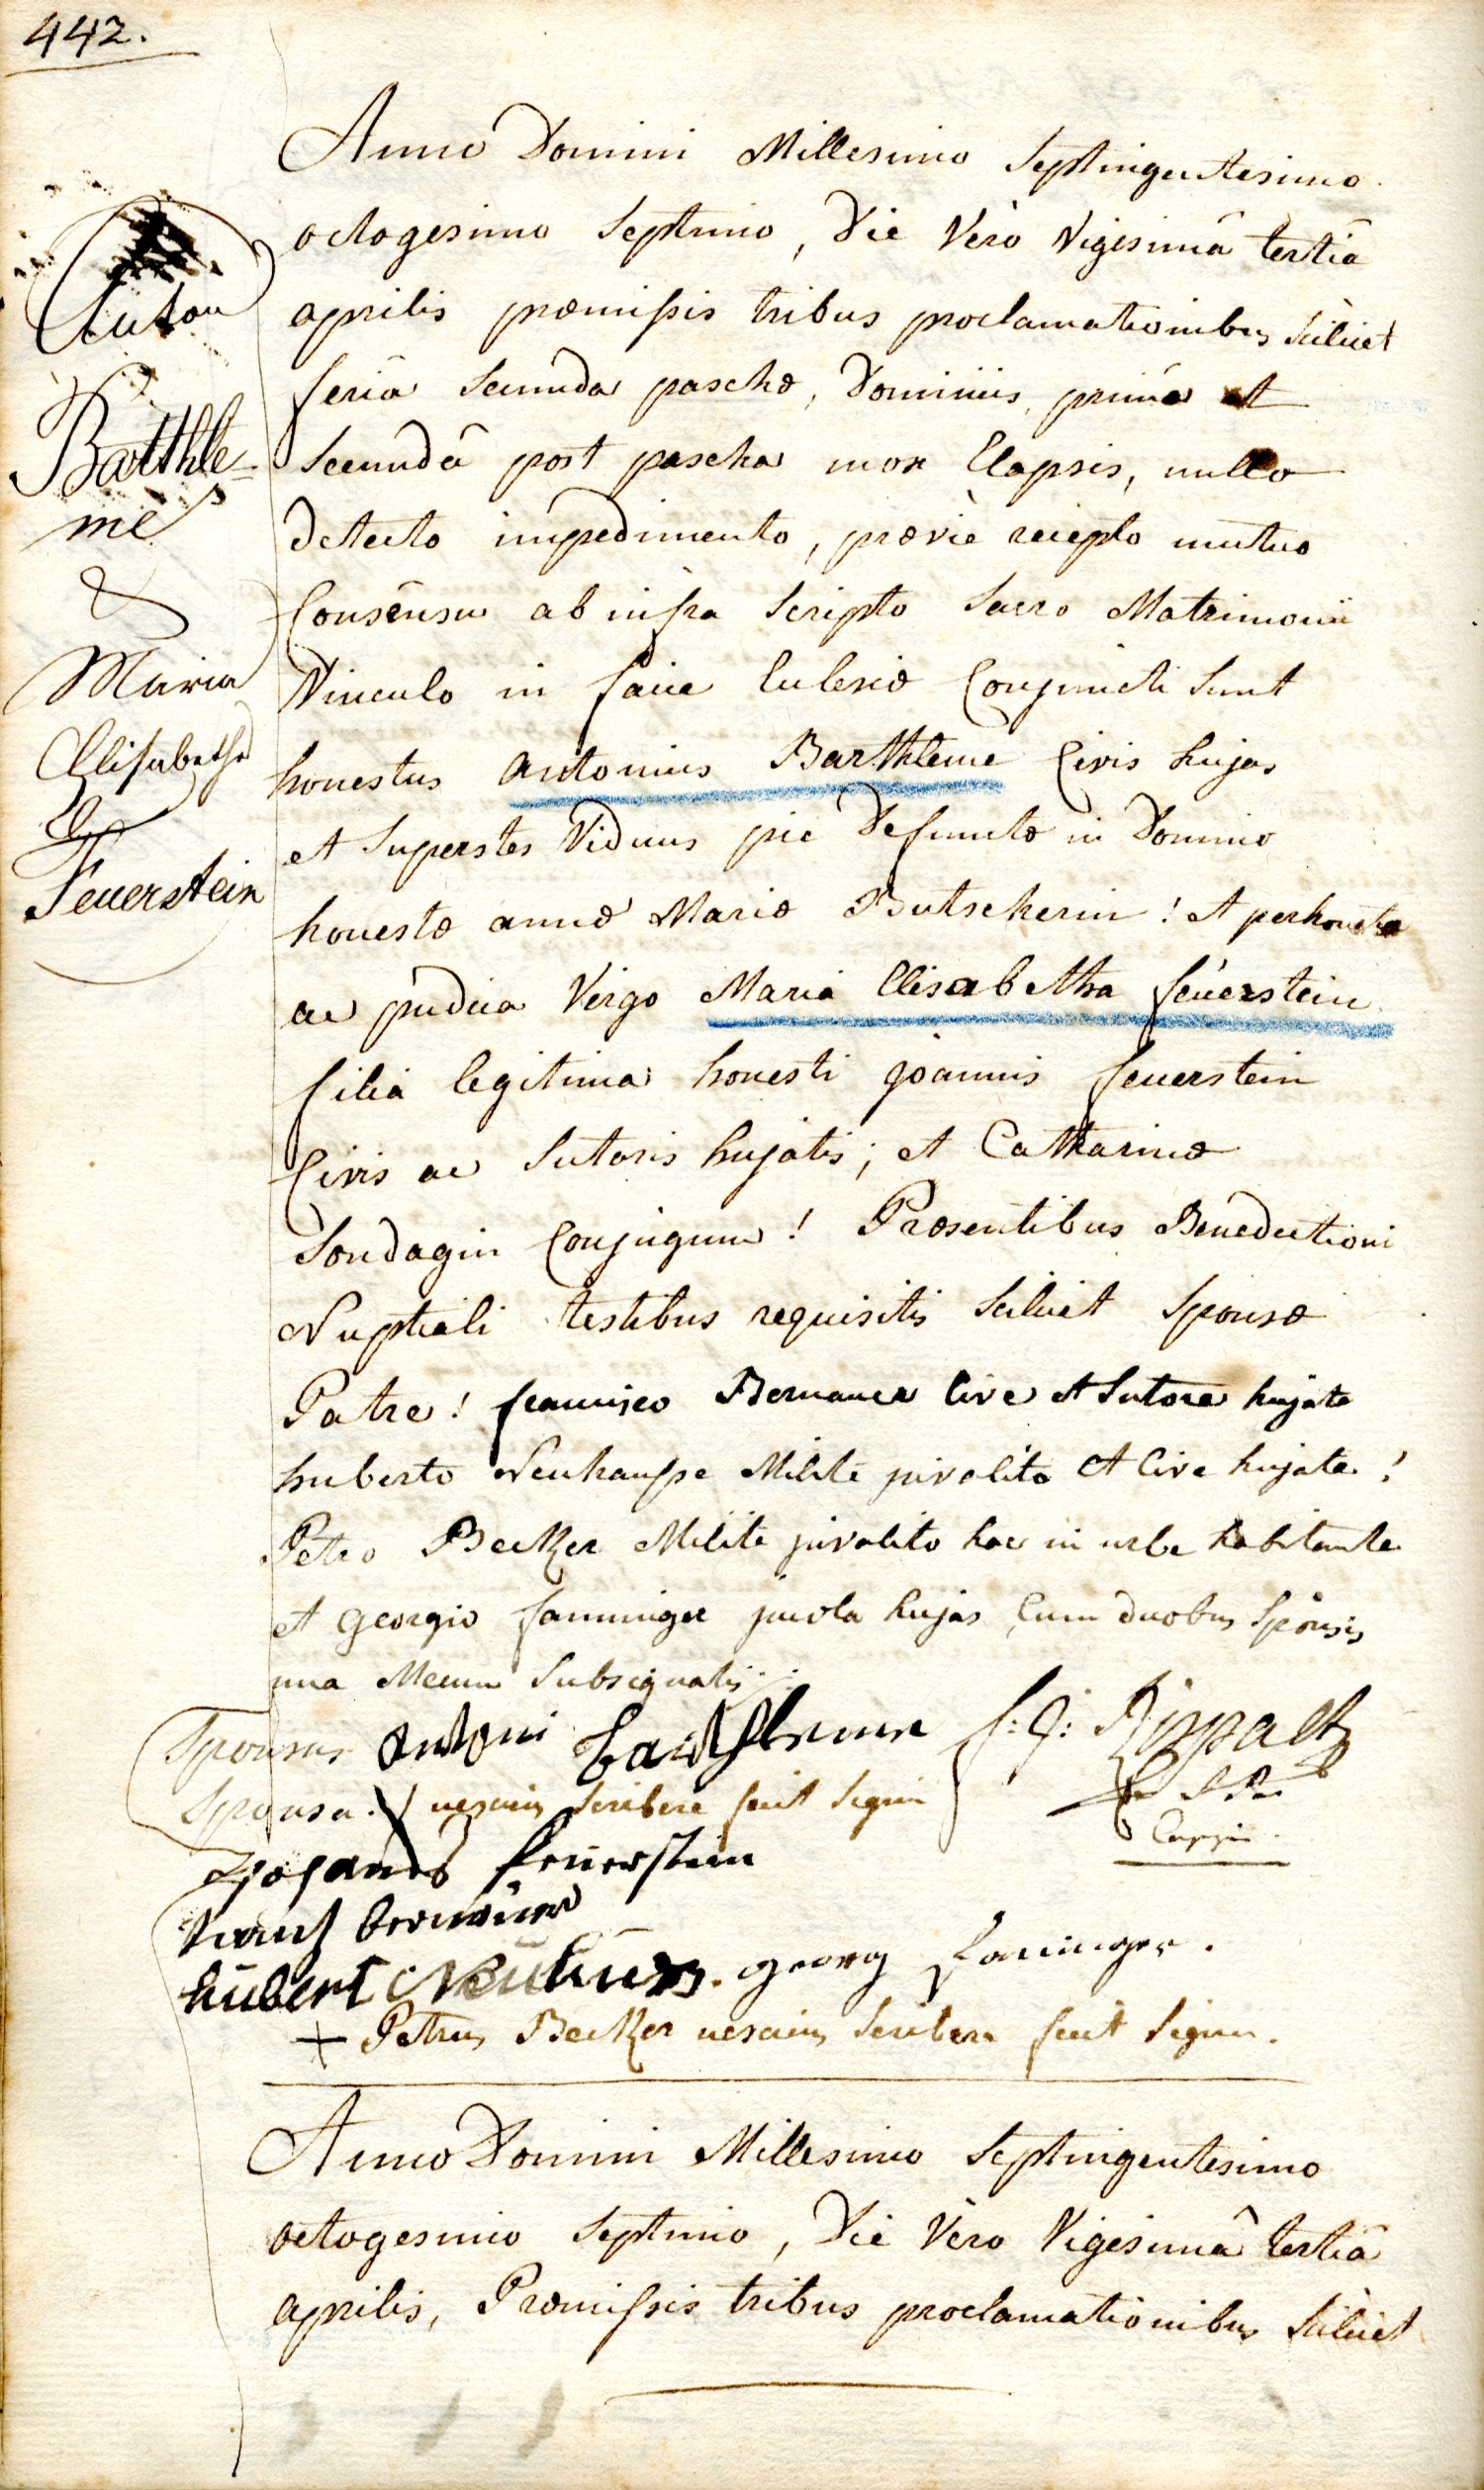 442.
Anton
Barthle-
me
&
Maria
Elisabetha
Feuerstein
Anno Domini Millesimo Septingentesimo
octogesimo Septimo, Die Verò Vigesimâ tertiâ
aprilis præmissis tribus proclamationibus Scilicet
feriâ Secunda paschæ, Dominicis, primâ et
Secundâ post pascha mox Elapsis, nullo
detecto impedimento, prævie recepto mutuo
Consensu ab infra Scripto Sacro Matrimonii
Vinculo in facie Eclesiæ Conjuncti Sunt
honestus antonius Barthleme Civis hujas
et Superstes Viduus pie Defunctæ in Domino
honestæ annæ Mariæ Butscherin! et perhonesta
ac pudica Virgo Maria Elisabetha feüerstein
filia legitima honesti joannis feuerstein
Civis ac Sutoris hujatis; et Catharinæ
Sondagin Conjugum! Præsentibus Benedictioni
Nuptiali testibus requisitis Scilicet Sponsæ
Patre! francisco Bernauer Cive et Sutore hujate
huberto Neuhausse Milite et Cive hujate!
Petro Becker Milite hac in urbe habitante
et georgio fanninger incola hujas, Cum duobus Sponsis
una Mecum Subsignatis
Sponsus antoni barthleme
Sponsa. nesciens Scribere fecit Signum
Johanes feüerstein
frantz bernauer
hübert Neuhüss. georg fanninger.
+ Petrus Becker nesciens Scribere fecit Signum.
Anno Domini Millesimo Septingentesimo
octogesimo Septimo, Die Verò Vigesimâ tertiâ
aprilis, Præmissis tribus proclamationibus Scilicet